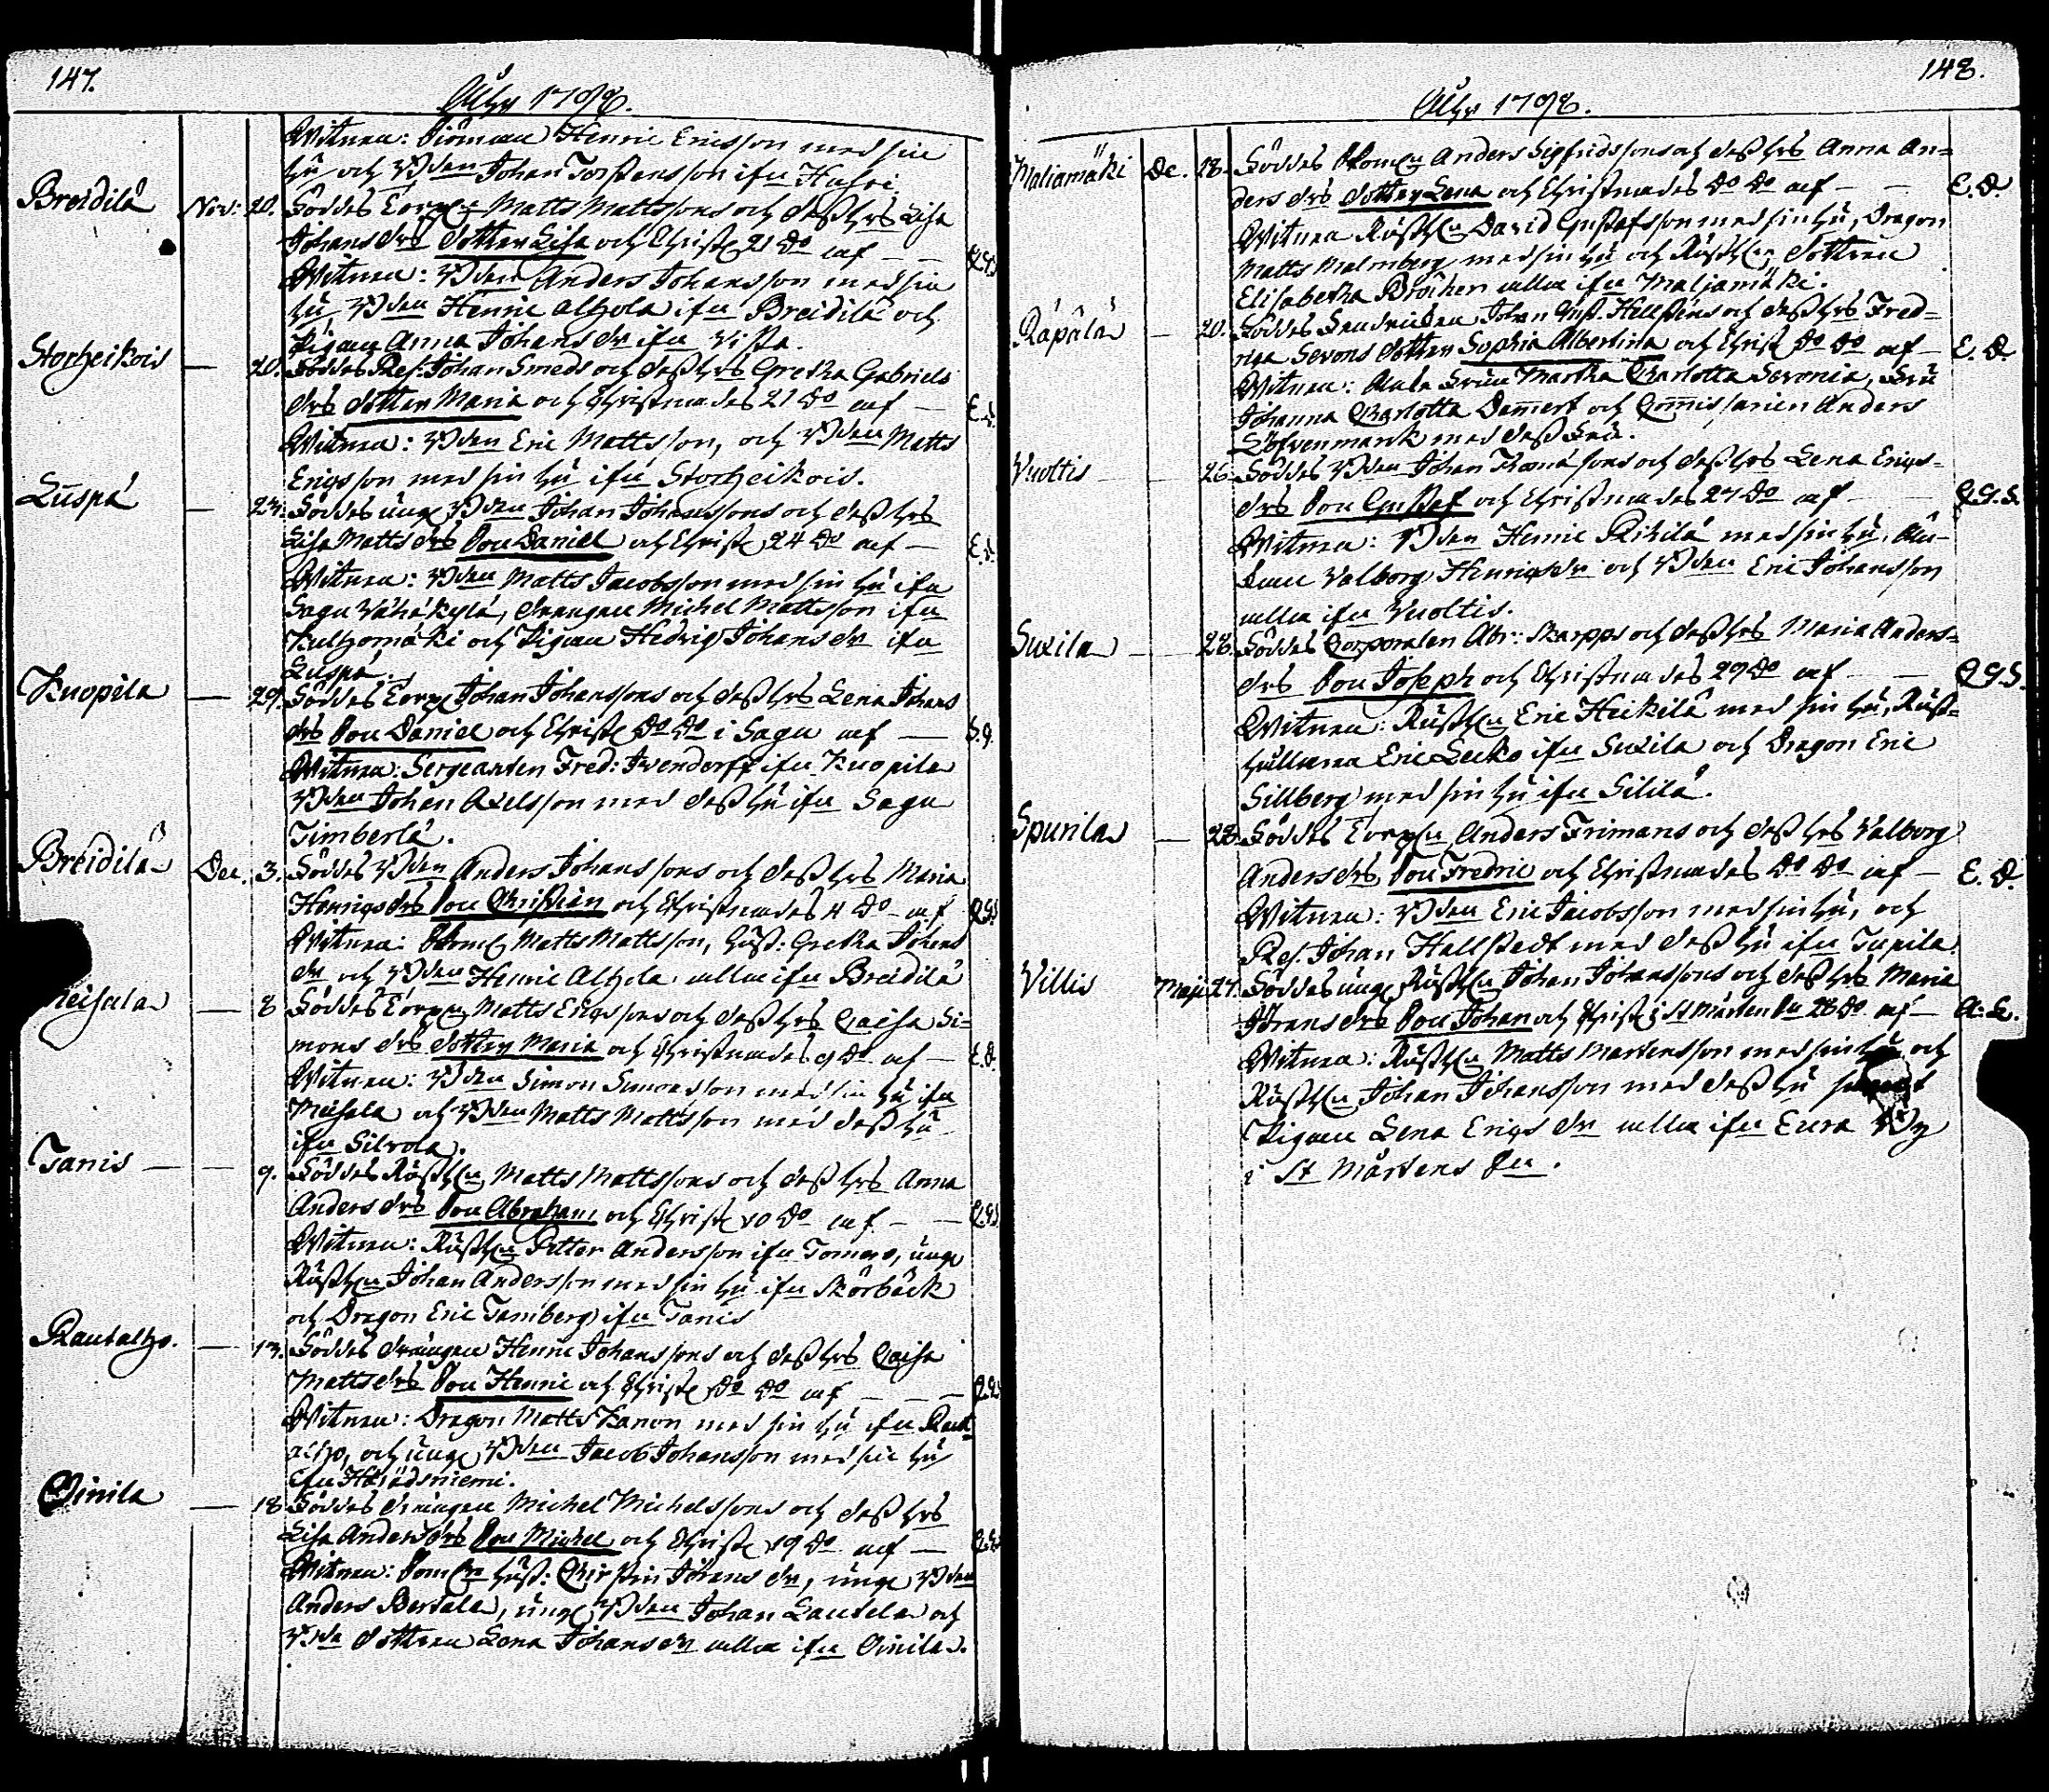 147.
Åhr 1798.
Witnen: Siöman Henric Ericsson med sin
hu och Bden Johan Torstensson ifrn Hafri.
Breidilä Nov: 20. Föddes Torpn Matts Mattssons och dess hrs Lisa
Johans drs dotter Lisa och Christ 21 do af — Q.G.S
Witnen: Bden Anders Johansson med sin
hu, Bden Henric Alhola ifrn Breidilä och
Pigan Anna Johans dr ifrn Vista.
Storheikois — 20. Föddes Res. Johan Smeds och dess hrs Gretha Gabriels
drs dotter Maria och Christnades 21 do af — E.D.
Witnen: Bden Eric Mattsson, och Bden Matts
Ericsson med sin hu ifrn Storheikois.
Luspä — 23. Föddes unge Bden Johan Johanssons och dess hrs
Lisa Matts drs Son Daniel och Christ 24 do af — E.D.
Witnen: Bden Matts Jacobsson med sin hu ifrn
Sagu Vähäkylä, drängen Michel Mattsson ifrn
Kulhomäki och Pigan Hedvig Johans dr ifrn
Luspä.
Kuopila — 29. Föddes Torp Johan Johanssons och dess hrs Lena Johans
drs Son Daniel och Christ do do i Sagu af — S.g.
Witnen: Sergeanten Fred: Ivendorff ifrn Kuopila
Bden Johan Axelsson med dess hu ifrn Sagu
Timberlä.
Breidilä Dec. 3. Föddes Bden Anders Johanssons och dess hrs Maria
Henrigs drs Son Christian och Christnades 4 do af Q.G.S
Witnen: Matts Mattsson, hust: Gretha Johans
dr och Bden Henric Alhola alla ifrn Breidilä
Meisala — 8 Föddes Torpn Matts Erigssons och dess hrs Caisa Si=
mons drs dotter Maria och Christnades 9 do af — E.D.
Witnen: Bden Simon Simonsson med sin hu ifrn
Meisala och Bden Matts Mattsson med dess hu
ifrn Silvola.
Tanis — — 9. Föddes Rusthn Matts Mattssons och dess hrs Anna
Anders drs Son Abraham och Christ 10 do af — Q.G.S
Witnen: Rusthn Petter Andersson ifrn Tomars, unge
Rusthn Johan Andersson med sin hu ifrn Skörbäck
och Dragon Eric Tamberg ifrn Tanis
Rautalho. — 13. Föddes drängen Henric Johanssons och dess hrs Caisa
Matts drs Son Henric och Christ do do af — Q.G.S
Witnen: Dragon Matts Kanon med sin hu ifrn Raut
alho, och unge Bden Jacob Johansson med sin hu
ifrn Häradsniemi.
Oinila — 18 Föddes drängen Michel Michelssons och dess hrs
Lisa Anders drs Son Michel och Christ 19 do af —
Witnen: hust: Chirstin Johans dr, unge Bden
Anders Bertala, unge Bden Johan Lautela och
Bde dottren Lena Johans dr alla ifrn Oinila.
148.
Åhr 1798.
Maliamäki De. 18. Föddes Anders Sigfridssons och dess hrs Anna An=
ders drs dotter Lena och Christnades do do af — E.D.
Witnen Rusthn David Gustafsson med sin hu, Dragon
Matts Malmberg med sin hu och Rusthn dottren
Elisabetha Broihen alla ifrn Maljamäki.
Räpälä — 20. Föddes Johan Gust. Hellstens och dess hrs Fred=
rica Serons dotter Sophia Albertina och Christ do do af — E.D
Witnen: Fru Martha Charlotta Seronia, Fru
Johanna Charlotta Dem̄ert och Com̄issarien Anders
Löfvenmark med dess Fru.
Vuoltis — — 26. Föddes Bden Johan Thomassons och dess hrs Lena Erigs=
drs Son Gustaf och Christnades 27 do af — Q.G.S.
Witnen: Bden Henric Pikilä med sin hu,
Valborg Henrigs dr och Bden Eric Johansson
alla ifrn Vuoltis.
Suxila — — 28. Föddes Corporalen Abr: Skarpps och dess hrs Maria Anders=
drs Son Joseph och Christnades 29 do af — Q.G.S.
Witnen: Rusthn Eric Heikilä med sin hu, Rust=
hållaren Eric Lecko ifrn Suxila och Dragon Eric
Sillberg med sin hu ifrn Sililä.
Spurila — 28. Föddes Torpn Anders Frimans och dess hrs Valborg
Anders drs Son Fredric och Christnades do do af — E.D.
Witnen: Bden Eric Jacobsson med sin hu, och
Res. Johan Hallstedt med dess hu ifrn Tapila.
Villis Maji 27. Föddes unge Rusthn Johan Johanssons och dess hrs Maria
Jörans drs Son Johan och Christ i St Mårtens Sn 28 do af —
Witnen: Rusthn Matts Martensson med sin hu och
Rusthn Johan Johansson med dess hu samt
Pigan Lena Erigs dr alla ifrn Eura By
i St Mårtens Sn.